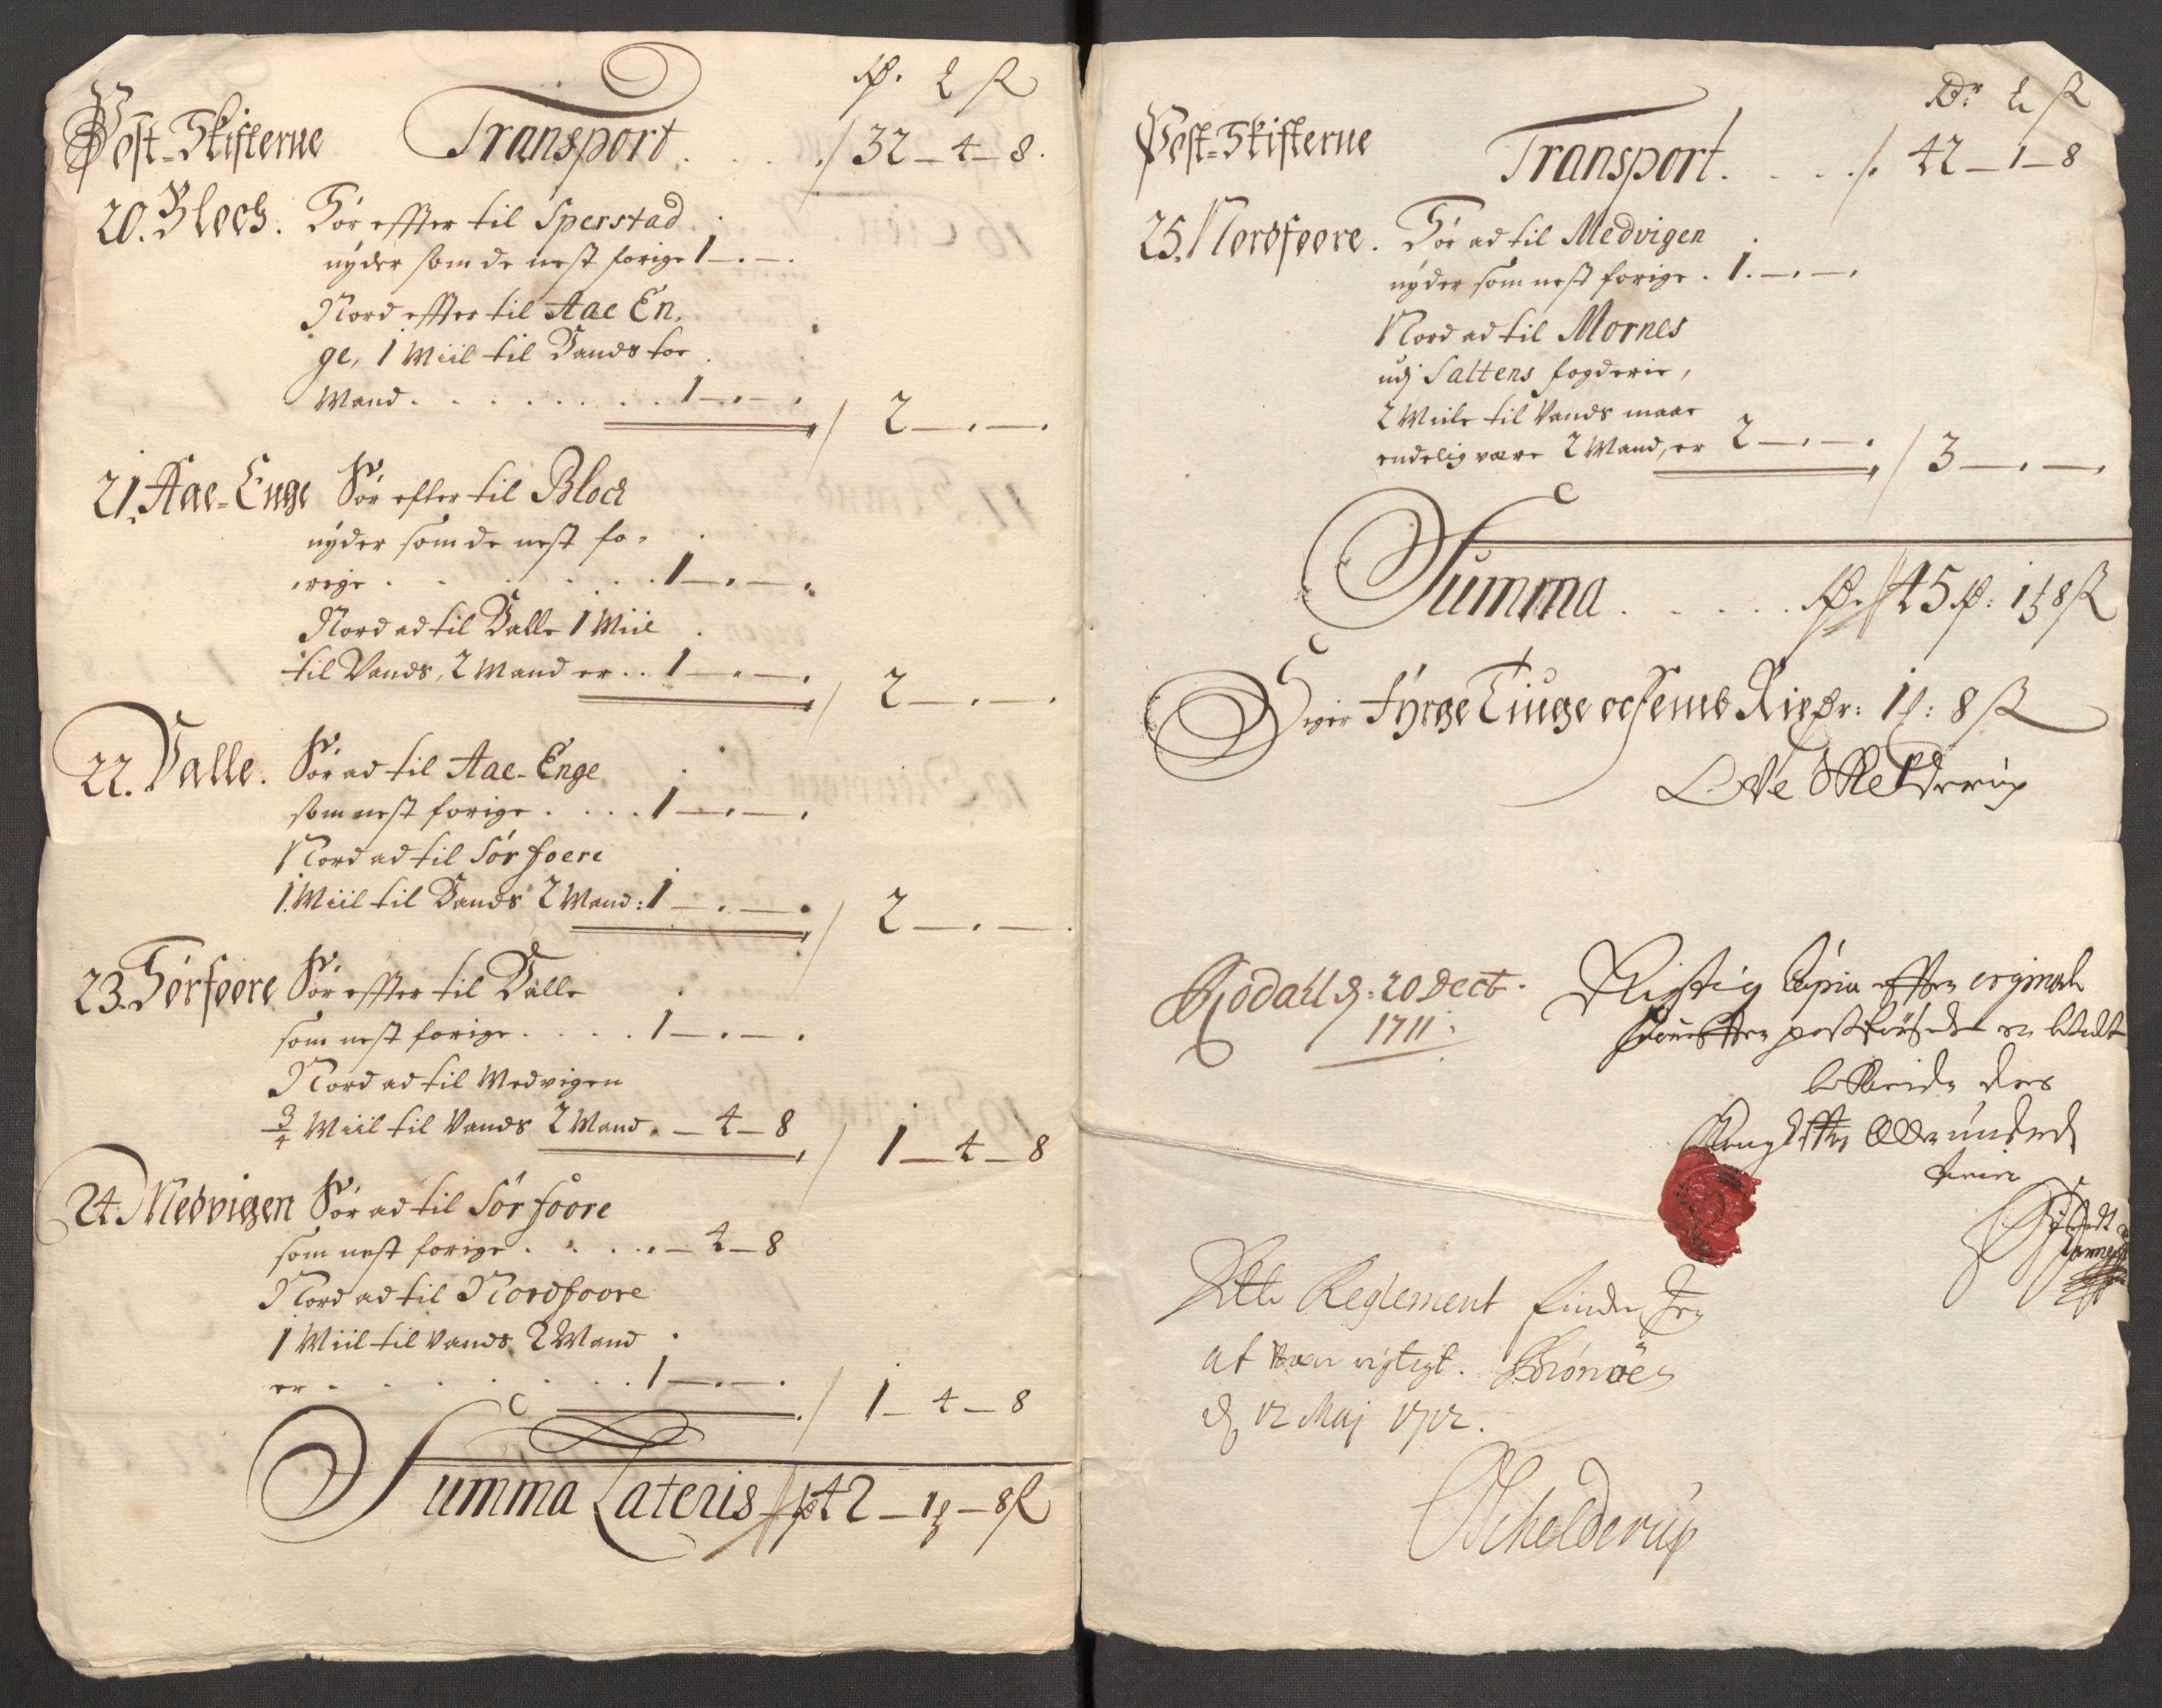 Rd. £ ß
Post-Skifterne Transport . . . . ./ 32 – 4 – 8.
20. Block. Sør effter til Sperstad
nyder som de nest forige 1 – . – .
Nord effter til Aae En,
ge, 1 Miil til Vands toe
Mand . . . . . . . . 1 – . – . / 2 – . – .
21. Aae-Enge Sør efter til Block
nyder som de nest fo,
rige . . . . . . . 1 – . – .
Nord ad til Valle 1 Miil
til Vands, 2 Mand er . . 1 – . – . / 2 – . – .
22. Valle. Sør ad til Aae-Enge
som nest forige . . . . 1 – . – .
Nord ad til Sør foere
1. Miil til Vands 2 Mand: 1 – . – . / 2 – . – .
23. Sørfoere Sør effter til Valle
som nest forige . . . . 1 – . – .
Nord ad til Medvigen
3/4 Miil til Vands 2 Mand . – 4 – 8 / 1 – 4 – 8
24. Medvigen Sør ad til Sør foore
som nest forige . . . . . – 4 – 8
Nord ad til Nordfoore
1 Miil til Vands 2 Mand
er . . . . . . . . 1 – . – . / 1 – 4 – 8
Summa Lateris 42 – 1 – 8 ß
Rdr £ ß
Post-Skifterne Transport . . . . /. 42 – 1 – 8
25. Nordfoore. Sør ad til Medvigen
nyder som nest forige . 1. – . – .
Nord ad til Mornes
udj Saltens fogderie,
2 Miile til Vands maae
endelig være 2 Mand, er 2 – . – . / 3 – . – .
Summa . . . . . Rd. 45 : 1 8 ß
Siger Fyrge Tiuge oc femb Rixdr: 1 : 8 ß
Ove Schelderup
Rødall d: 20 Decb.
1711:
Rigtig Copia effter orginale
er betalt
Dette Reglement finder Jeg
at være rigtigt. Brønøe
d 12 Maj 1712.
Schelderup